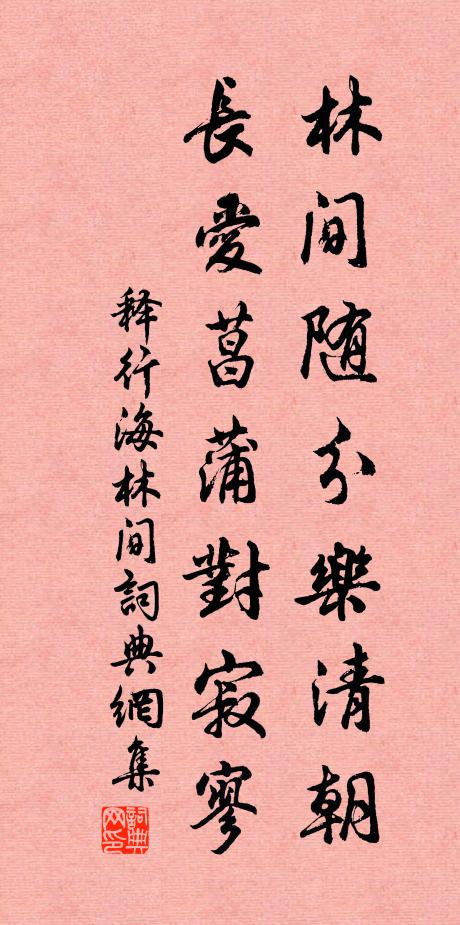 林間随分樂清朝
長愛菖蒲對寂寥
释行海林間詞典網集
詞典网印